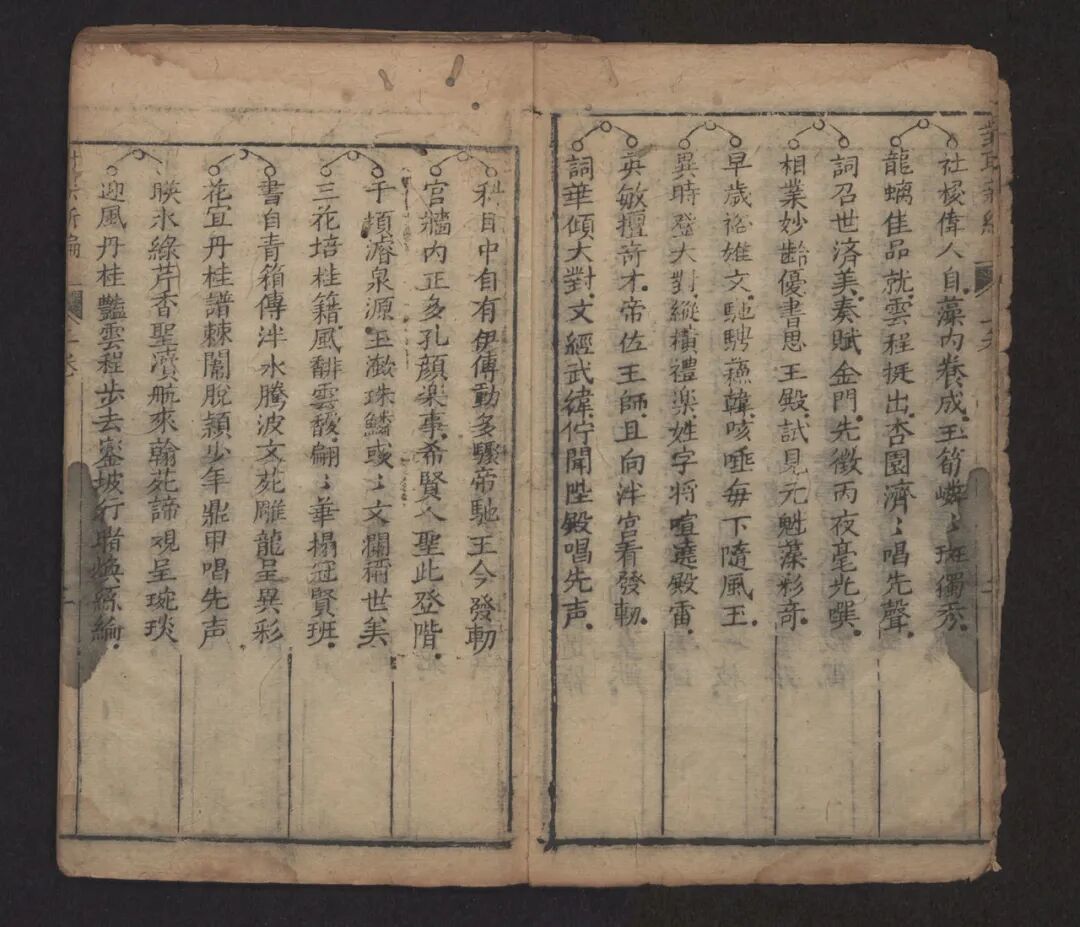 社稷偉人自藻内養成王筍嶙〻班獨秀
龍螭佳品就雲程挺出杏園濟〻唱先聲
詞召世済美奏賦金門先徵丙夜毫光噀
相業妙齡優書思王殿試見元魁藻彩奇
早歲裕雄文馳騁蘓韓咳唾每下隨風玉
異時登大對縱横禮楽姓字將喧遶殿雷
英敏擅奇才帝佐王師且向泮宮看發軔
詞華傾大對文經武緯佇聞陛殿唱先声
科目中自有伊傳動多驟帝馳王今發軔
宮牆内正多孔顔楽事希賢入聖此登階
千頃濬泉源玉潋珠鱗或〻文瀾稱世美
三花培桂籍風翻雲靉翩〻華榻冠賢班
書自青箱傳泮水騰波文苑雕龍呈異彩
花宜丹桂譜棘闈脫穎少年鼎甲唱先声
聨氷綠芹香聖濱航來翰苑諦視呈琬琰
迎風丹桂豔雲程步去鑾坡行睹煥絲綸